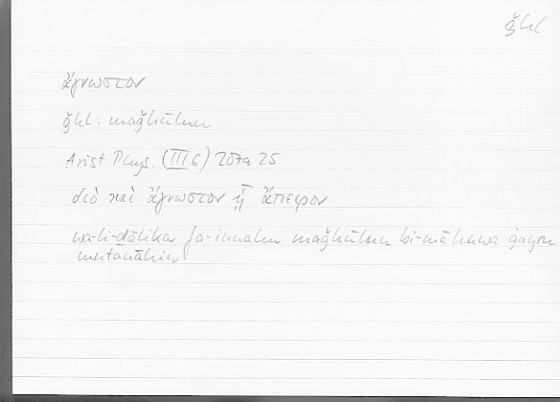 ǧhl
ἄγνωστον
ǧhl: maǧhūlun
Arist Phys. (III 6) 207a 25
διὸ καὶ ἄγνωστον ᾗ ἄπειρον
wa-li-ḏālika fa-innahu maǧhūlun bi-mā huwa ġayru
mutanāhin